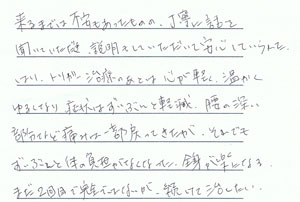 来るまでは不安もあったものの、丁寧に話を
聞いていただき 説明もしていただいて安心していられた。
はり、トリガー治療のあとは 心が軽く、温かく
ゆるくなり 症状はずいぶんと軽減。腰の深い
部分など痛みは一部戻ってきたが、それでも
ずいぶんと体の負担がなくなった。体が楽になる。
まだ2回目で完全ではないが、続けて治したい。